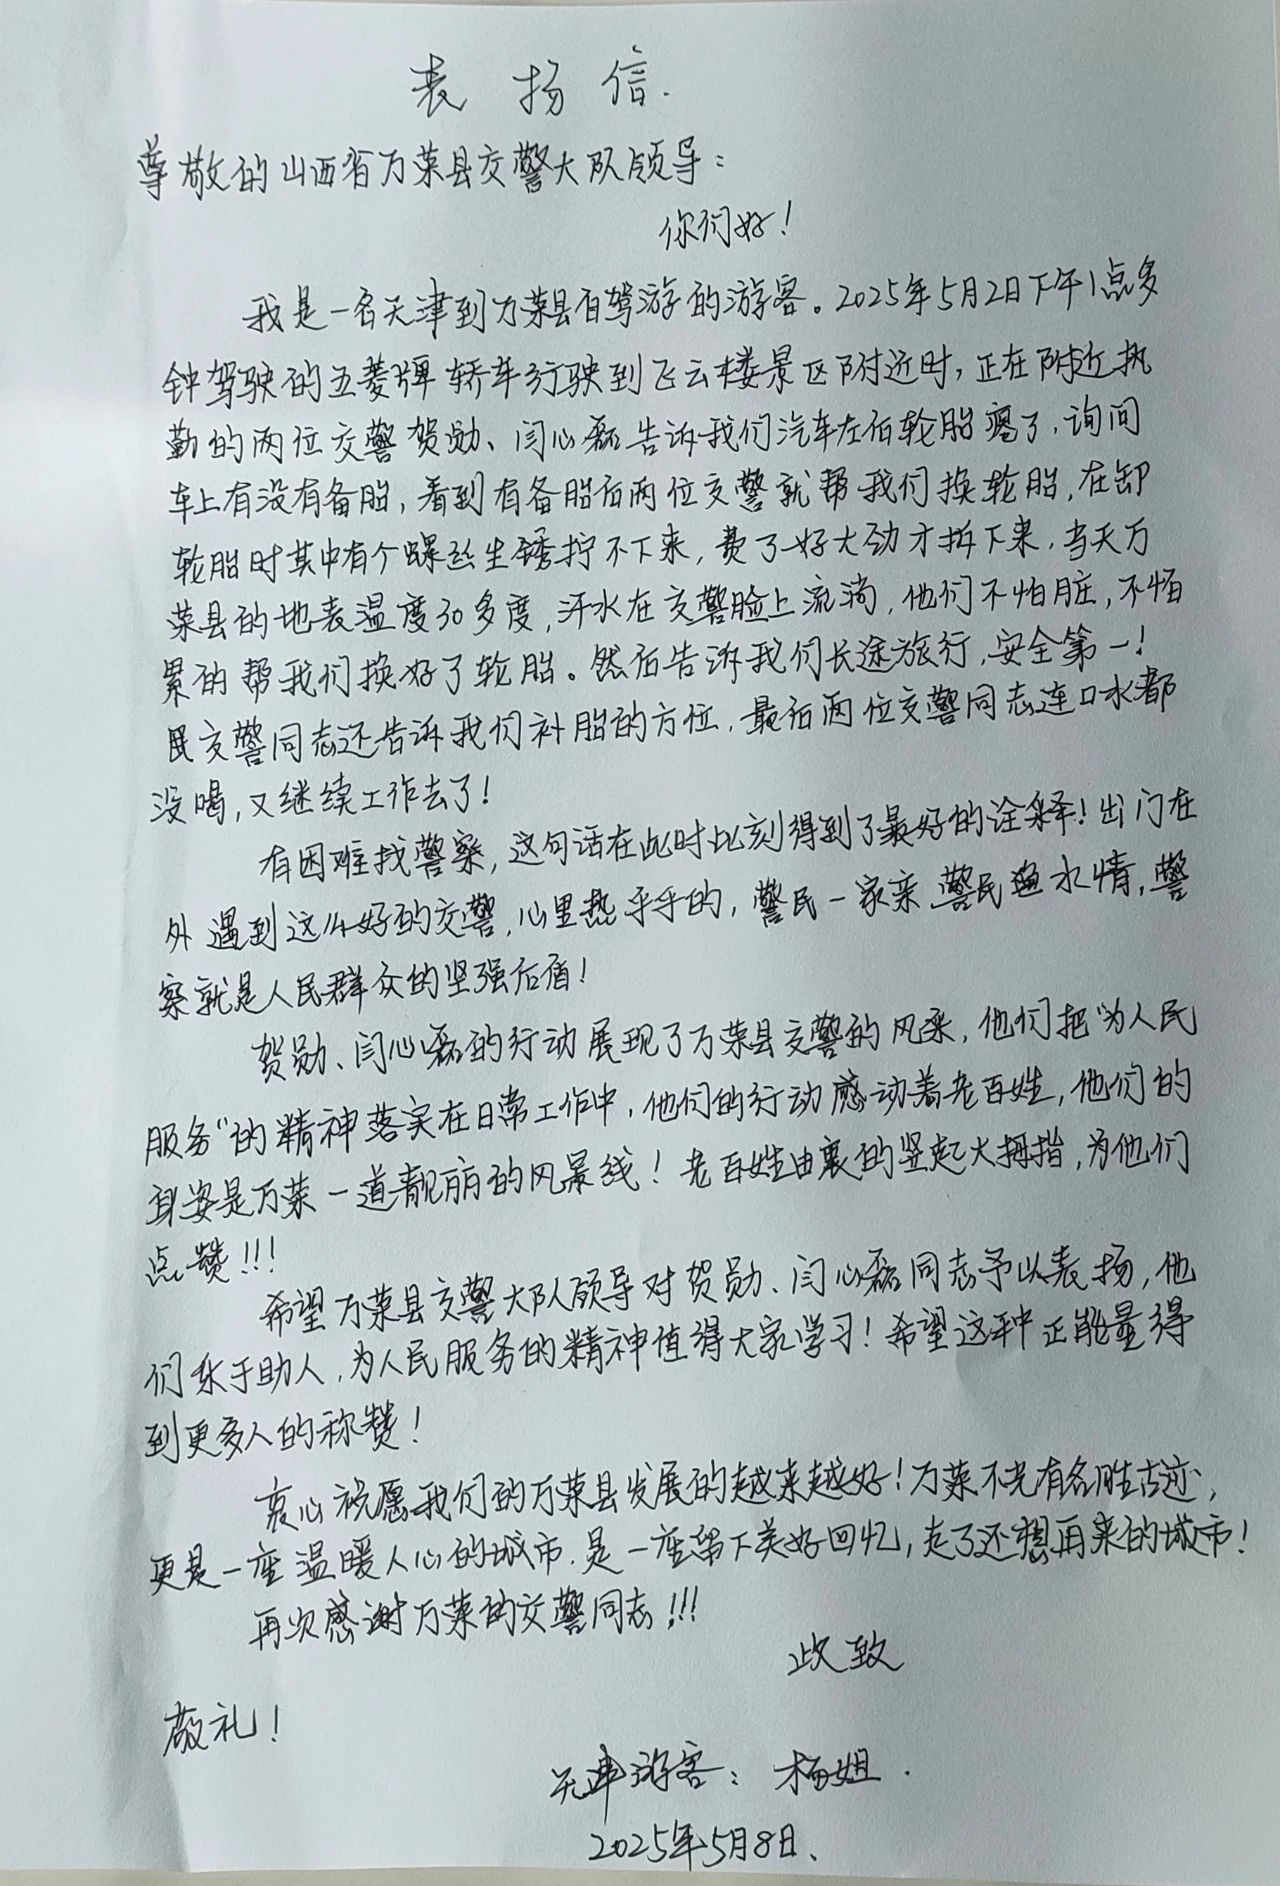 表扬信.
尊敬的山西省万荣县交警大队领导：
你们好！
我是一名天津到万荣县自驾游的游客。2025年5月2日下午1点多
钟驾驶的五菱牌轿车行驶到飞云楼景区附近时，正在附近执
勤的两位交警贺勋、闫心磊告诉我们汽车左后轮胎瘪了，询问
车上有没有备胎，看到有备胎后两位交警就帮我们换轮胎，在卸
轮胎时其中有个螺丝生锈拧不下来，费了好大劲才拆下来，当天万
荣县的地表温度30多度，汗水在交警脸上流淌，他们不怕脏，不怕
累的帮我们换好了轮胎。然后告诉我们长途旅行，安全第一！
民交警同志还告诉我们补胎的方位，最后两位交警同志连口水都
没喝，又继续工作去了！
有困难找警察，这句话在此时此刻得到了最好的诠释！出门在
外遇到这么好的交警，心里热乎乎的，警民一家亲，警民鱼水情，警
察就是人民群众的坚强后盾！
贺勋、闫心磊的行动展现了万荣县交警的风采，他们把“为人民
服务“的精神落实在日常工作中，他们的行动感动着老百姓，他们的
身姿是万荣一道靓丽的风景线！老百姓由衷的竖起大拇指，为他们
点赞！！！
希望万荣县交警大队领导对贺勋、闫心磊同志予以表扬，他
们乐于助人，为人民服务的精神值得大家学习！希望这种正能量得
到更多人的称赞！
衷心祝愿我们的万荣县发展的越来越好！万荣不光有名胜古迹，
更是一座温暖人心的城市，是一座留下美好回忆，走了还想再来的城市！
再次感谢万荣的交警同志！！！
此致
敬礼！
天津游客：杨姐.
2025年5月8日、